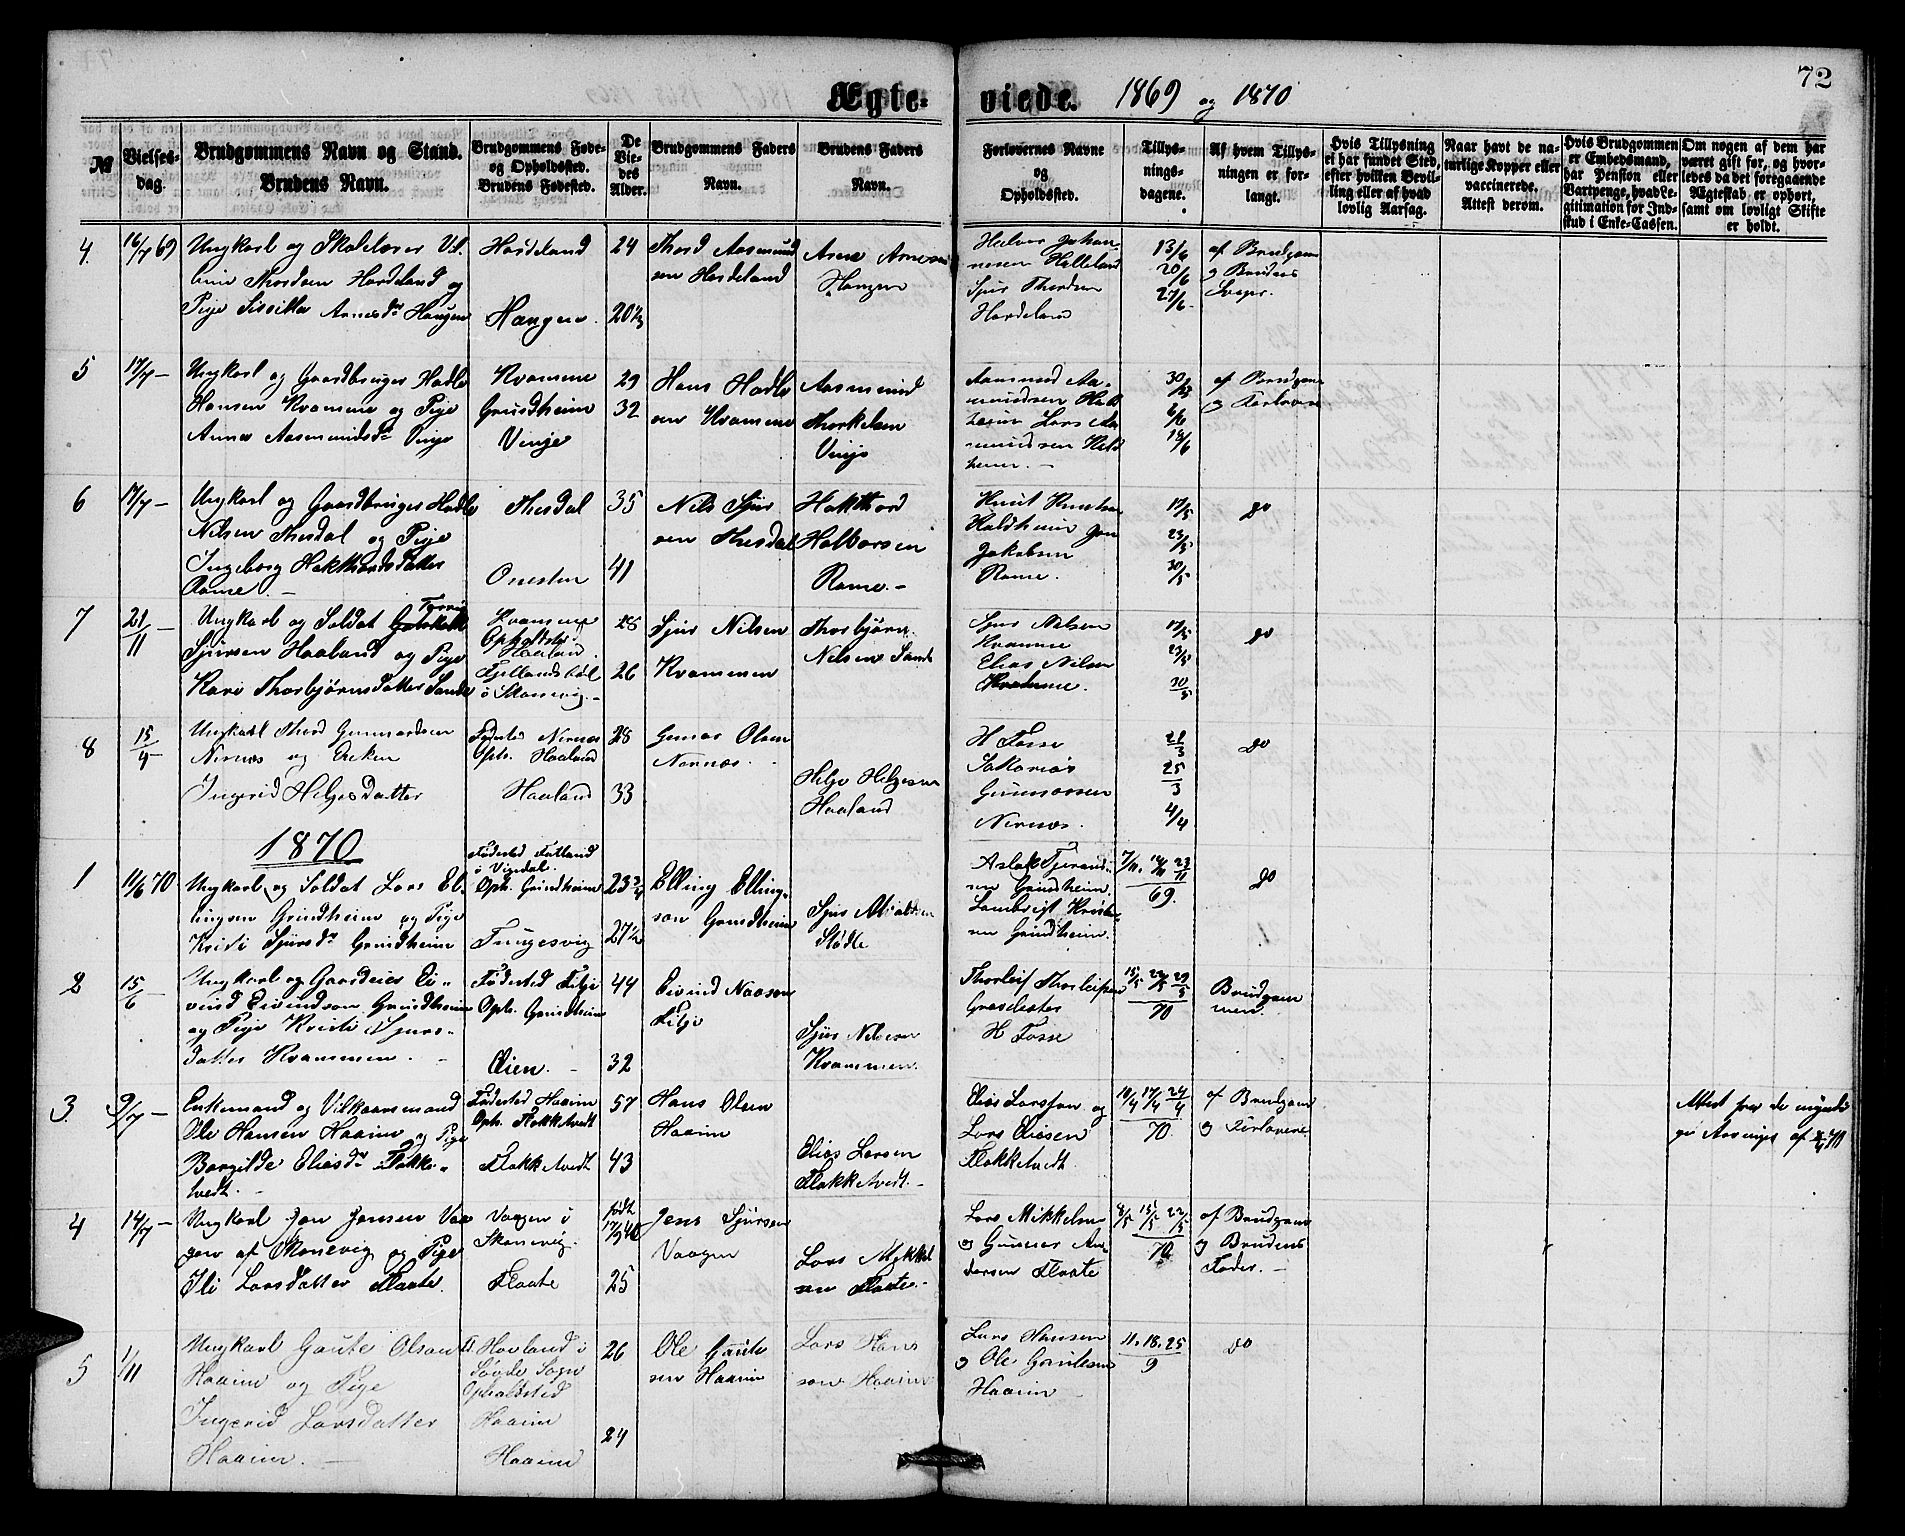 72
Ægteviede. 1869 og 1870
№
Vielsesdag.
Brudgommens Navn og Stand.
Brudens Navn.
Brudgommens Føde-
og Opholdssted.
Brudens Fødested.
De
Vie-
des
Alder.
Brudgommens Faders
Navn.
Brudens Faders
Navn.
Forlovernes Navne
og
Opholdssted.
Tillys-
nings-
dagene.
Af hvem Tillys-
ningen er for-
langt.
Hvis Tillysning
ei har fundet Sted,
efter hvilken Bevil-
ling eller af hvad
lovlig Aarsag.
Naar havt de na-
turlige Kopper eller
vaccinerede.
Attest derom.
Hvis Brudgommen
er Embedsmand,
har Pension eller
Vartpenge, hvad Le-
gitimation for Ind-
skud i Enke-Cassen.
Om nogen af dem har
været gift før, og hvor-
ledes da det foregaaende
Ægteskab er ophørt,
samt om lovligt Skifte
er holdt.
4. 16/7 69
Ungkarl og Skolelærer Vil-
Thordsen Hordeland og
Pige Sissilla Arnesdr Haugen
Hordeland
Haugen
24
20 1/3
Thord Aasmund
sen Hordeland
Arne Arnesen
Haugen
Halvor Johan-
nesen Helleland
Sjur Thordsen
Hordeland
13/6
20/6
27/6
af Brudgom
og Brudens
Svepr.
5 17/7 –
Ungkarl og Gaardbruger Hadle
Hansen Kvamme og Pige
Anna Aasmundsdr Vinje
Kvamme
Grindheim
Vinje
29
32
Hans Hadle
sen Kvamme
Aasmund
Thorkelsen
Vinje
Aamund Aa-
mundsen Held
heim Lars Aa
mundsen Held
heim. –
30/5
6/6
af Brudgom
og Forlovere
6 17/7 –
Ungkarl og Gaardbruger Hadle
Nilsen Thesdal og Pige
Ingeborg Hakthordsdatter
Rame. –
Thesdal
Onesten
35
41
Nils Sjur
sen Thesdal
Hakthord
Halvorsen
Rame. –
Knut Knutsen
Haldheim Jon
Jakobsen
Rame.
17/5
23/5
30/5
do
7 21/11 –
Ungkarl og Soldat Torris
Sjursen Haaland og Pige
Kari Thorbjørnsdatter Sande
Kvamme
Opholdsted
Haaland.
Fjellandsbøl
i Skonevig. –
26
Sjur Nilsen
Kvammen
Thorbjørn
Nilsen Sande
Sjur Nilsen
Kvamme
Elias Nilsen
Kvamme.
17/5
23/5
30/5
do
8 15/4
Ungkarl Thord Gunnarsen
Nernæs og Enken
Ingerid Helgesdatter
Fødested Nernæs
Oph. Haaland
Haaland
28
33
Gunnar Olsen
Nernæs.
Helge Helgesen
Haaland
H Fosse
Sakarias
Gunnarsen
Nernæs.
21/3
25/3
4/4
do
1870
1 11/6 70
Ungkarl og Soldat Lars El-
lingsen Grindheim og Pige
Kristi Sjursdr Grindheim
Fødested Fatland
i Vigedal.
Oph. Grindheim
Tungesvig
23 3/4
27 1/2
Elling Elling-
sen Grindheim
Sjur
Stødle
Aslak Tjerand-
sen Grindheim.
Lambrigt Kriste-
sen Grindheim.
7/11. 14/11 23/11
69.
do
2 15/6 –
Ungkarl og Gaardeier Ei-
vind Eivindson Grindheim
og Pige Kristi Sjurs-
datter Kvammen. –
Fødested Filje
Oph. Grindheim
Øien. –
44
32
Eivind Naason
Filje
Sjur Nilsen
Kvammen.
Thorleif Thorleifsen
H Fosse
15/5 22/5 29/5
70
Brudgom
men.
3. 9/7 –
Enkemand og Vilkaarsmand
Ole Hansen Haaim og Pige
Borgilde Eliasdr Flokke-
tvedt. –
Fødested Haaim
Oph. Flokketvedt
Flokketvedt
57
43
Hans Olsen
Haaim
Elias Larsen
Flokketvedt. –
Elias Larsson og
Lars Eliasen
Flokketvedt.
10/4 17/4 24/4
70.
af Brudgom
og Forlovere
Attest fra de myndi-
ge Arvinger af
4 14/7 –
Ungkarl Jon Jensen Vaa
gen af Skonevig og Pige
Ili Larsdatter Flaate
Vaagen i
Skonevig.
Flaate
født
17/9 40
25
Jens Sjursen
Vaagen
Lars Mykkel
sen Flaate –
Lars Mikkelsen
og Gunnar An
dersen Flaate
8/5 15/5 22/5
70
af Brudgom
og Brudens
Fader. –
5 1/11
Ungkarl Gaute Olson
Haaim og Pige
Ingerid Larsdatter
Haaim. –
F. Hovland i
Søvde Sogn
Opholdsted
Haaim
Haaim
26
24
Ole Gaute
sen Haaim
Lars Hans
son Haaim
Lars Hansen
og Ole Gautesen
Haaim
11. 18. 25
9
do